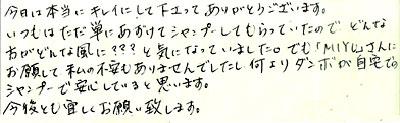 今日は本当にキレイにして下さってありがとうございます。
いつもはただ単にあずけてシャンプーしてもらっていたので どんな
方がどんな風に??? と気になっていました。でも「MIYU」さんに
お願して 私の不安もありませんでしたし 何よりダンボが自宅での
シャンプーで安心していると思います。
今後とも宜しくお願い致します。